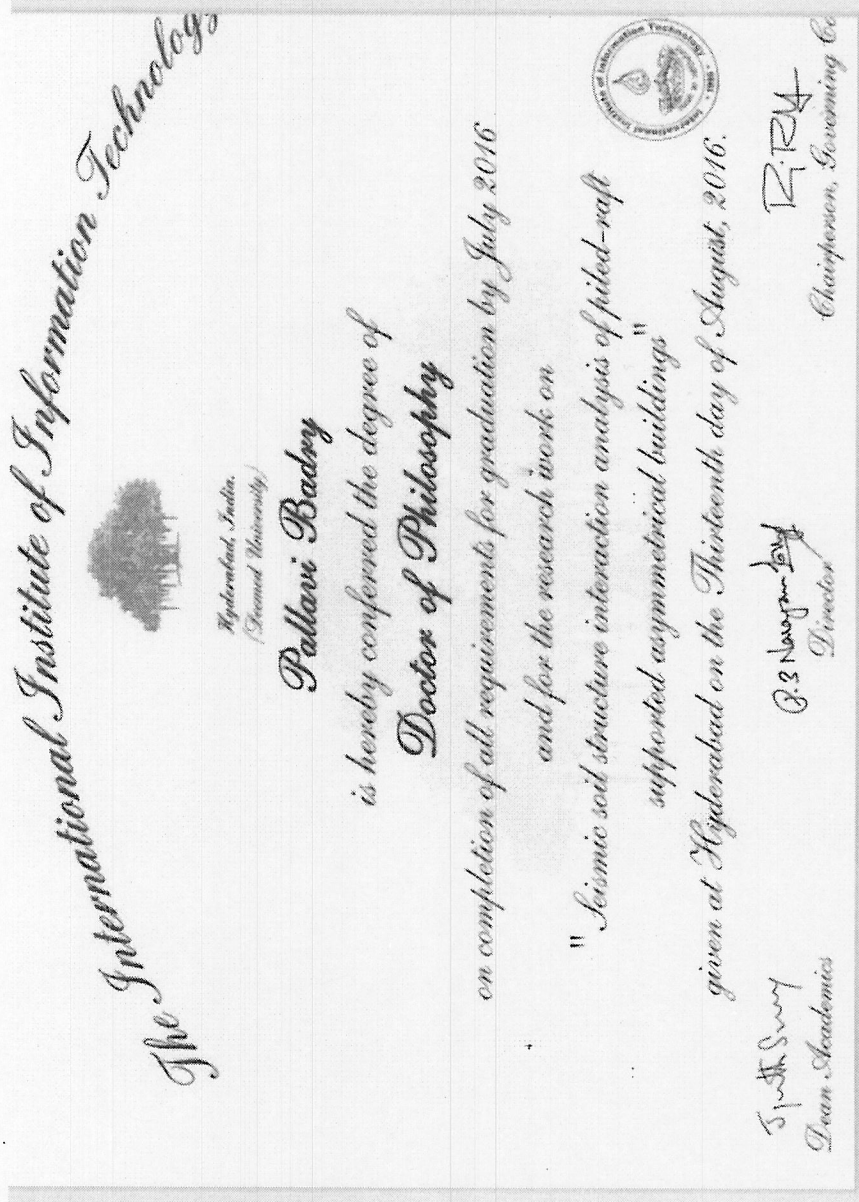 The International Institute of Information Technology
Hyderabad, India.
(Deemed University)
Pallavi Badry
is hereby conferred the degree of
Doctor of Philosophy
on completion of all requirements for graduation by July 2016
and for the research work on
"Seismic soil structure interaction analysis of piled-raft
supported asymmetrical buildings"
given at Hyderabad on the Thirteenth day of August, 2016.
International Institute of Information Technology
Dean Academics
P.J Narayan
Director
Chairperson, Governing Co